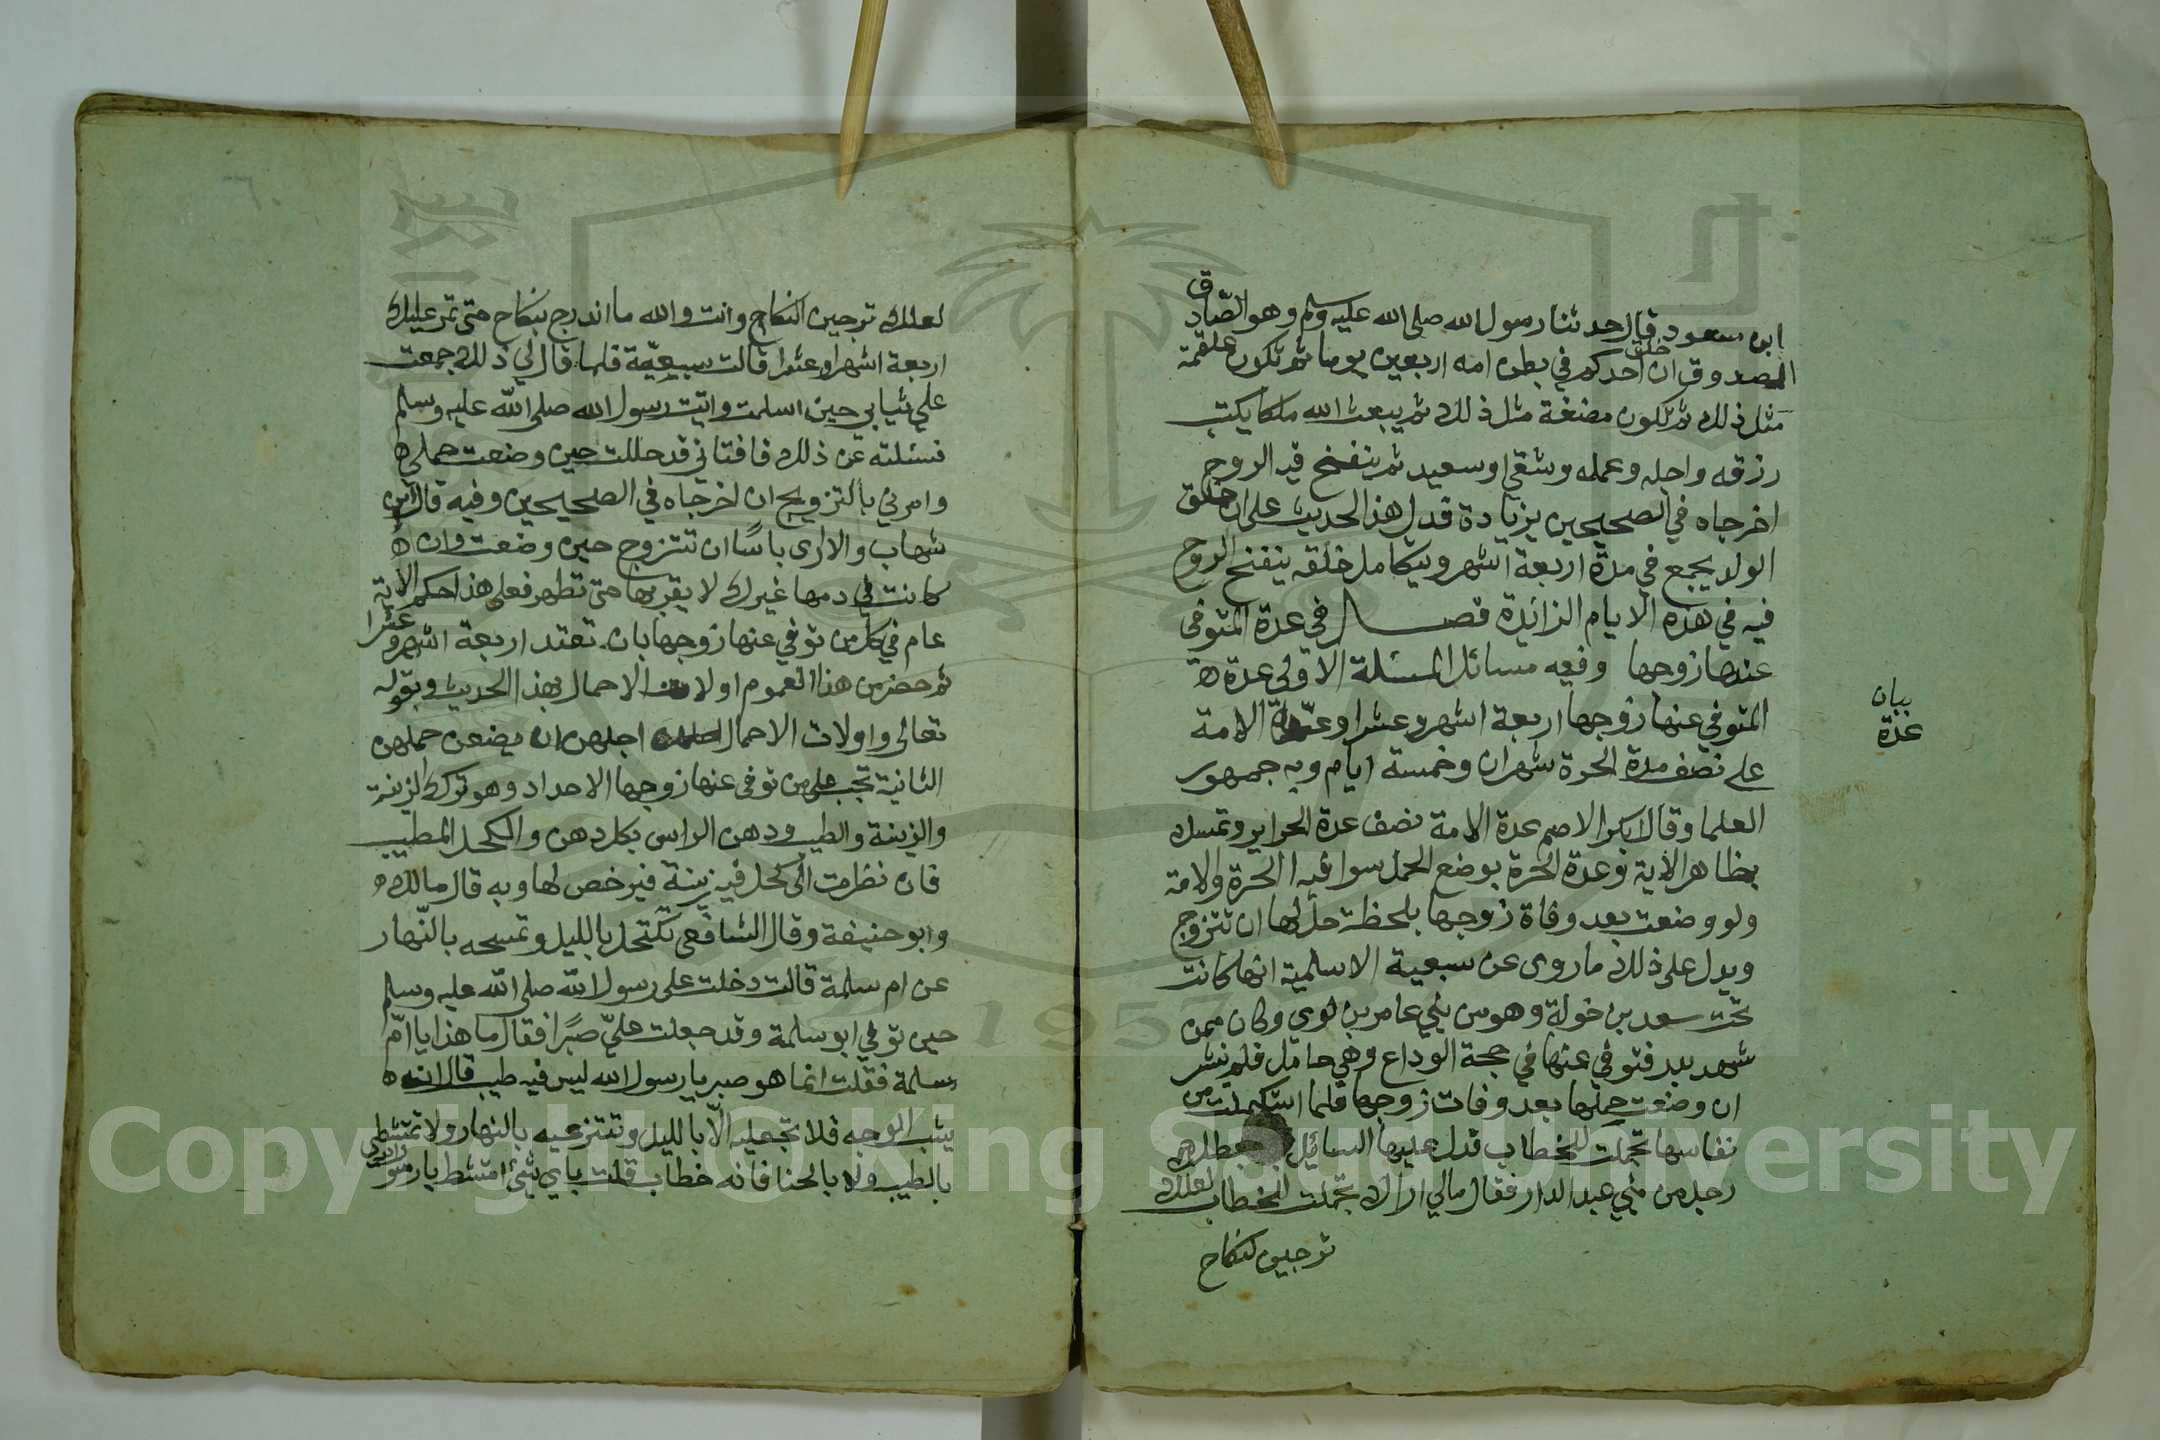 ابن سعود قال حدثنا رسول الله صلى الله عليه وسلم وهو الصادق
المصدوق ان خلق احدكم في بطن امه اربعين يوما ثم تكون علقمة
مثل ذلك ثم تكون مضغة مثل ذلك ثم يبعث الله ملكا يكتب
رزقه واجله وعمله وشقي او سعيد ثم ينفخ فيه الروح
اخرجاه في الصحيحين بزيادة فدل هذا الحديث على ان خلق
الولد يجمع في مدة اربعة اشهر ويتكامل خلقه ينفخ الروح
فيه في هذه الايام الزائدة فصل في عدة المتوفى
عنها زوجها وفيه مسائل المسئلة الاولى عدة
المتوفي عنها زوجها اربعة اشهر وعشرا وعدة الامة
على نصف مدة الحرة شهران وخمسة ايام وبه جمهور
العلما وقال ابكر الاصم عدة الامة نصف عدة الحراير وتمسك
بظاهر الآية وعدة الحرة بوضع الحمل سوا فيه الحرة ولامة
ولو وضعت بعد وفاة زوجها بلحظة حل لها ان تتزوج
ويدل على ذلك ما روى عن سبعية الاسلمية انها كانت
تحت سعد بن خولة وهو من بني عامر بن لوي وكان ممن
شهد بدر فتوفي عنها في حجة الوداع وهي حامل فلم نشر
ان وضعت حملها بعد وفات زوجها فلما استكملت من
نفاسها تجملت للخطاب فدل عليها السائل
رجل من بني عبد الدار فقال مالي اراك تجملت للخطاب لعلك
ترجين لنكاح
بيان
عدة
لعلك ترجين النكاح وانت والله ما اندرج بنكاح حتى تمر عليك
اربعة اشهر وعشرا قالت سبيعية فلما قال لي ذلك جمعت
علي ثيابي حين اسلمت واتيت رسول الله صلى الله عليه وسلم
فسئلته عن ذلك فافتاني قد حللت حين وضعت حملي
وامرني بالتزويج ان اخرجاه في الصحيحين وفيه قال ابن
شهاب والا ارى باسًا ان تتزوج حين وضعت وان
كانت في دمها غيرك لا يقربها حتى تطهر فعلى هذا حكم الاية
عام في كل من توفي عنها زوجها بان تعتد اربعة اشهر وعشرا
ثم حضر من هذا العموم اولات الاحمال بهذا الحديث وبقوله
تعالى واولات الاحمال اجلهن ان يضعن حملهن
الثانية تجب على من توفى عنها زوجها الاحداد وهو ترك الزينة
والزينة والطيب ودهن الراس بكل دهن والكحل المطيب
فان نظرت الى كحل فيه زينة فيرخص لها وبه قال مالك
وابو حنيفة وقال الشافعي تكتحل بالليل وتمسحه بالنهار
عن ام سلمة قالت دخلت على رسول الله صلى الله عليه وسلم
حين توفي ابو سلمة وقد جعلت عليّ صبرًا فقال ما هذا يا امّ
سلمة فقلت انما هو صبر يا رسول الله ليس فيه طيب قال انه
يشب الوجه فلا تجعليه الّا بالليل وتنتزعيه بالنهار ولا تمتشطي
بالطيب ولا بالحنا فانه خطاب قلت باي شئ امتشط يا رسو